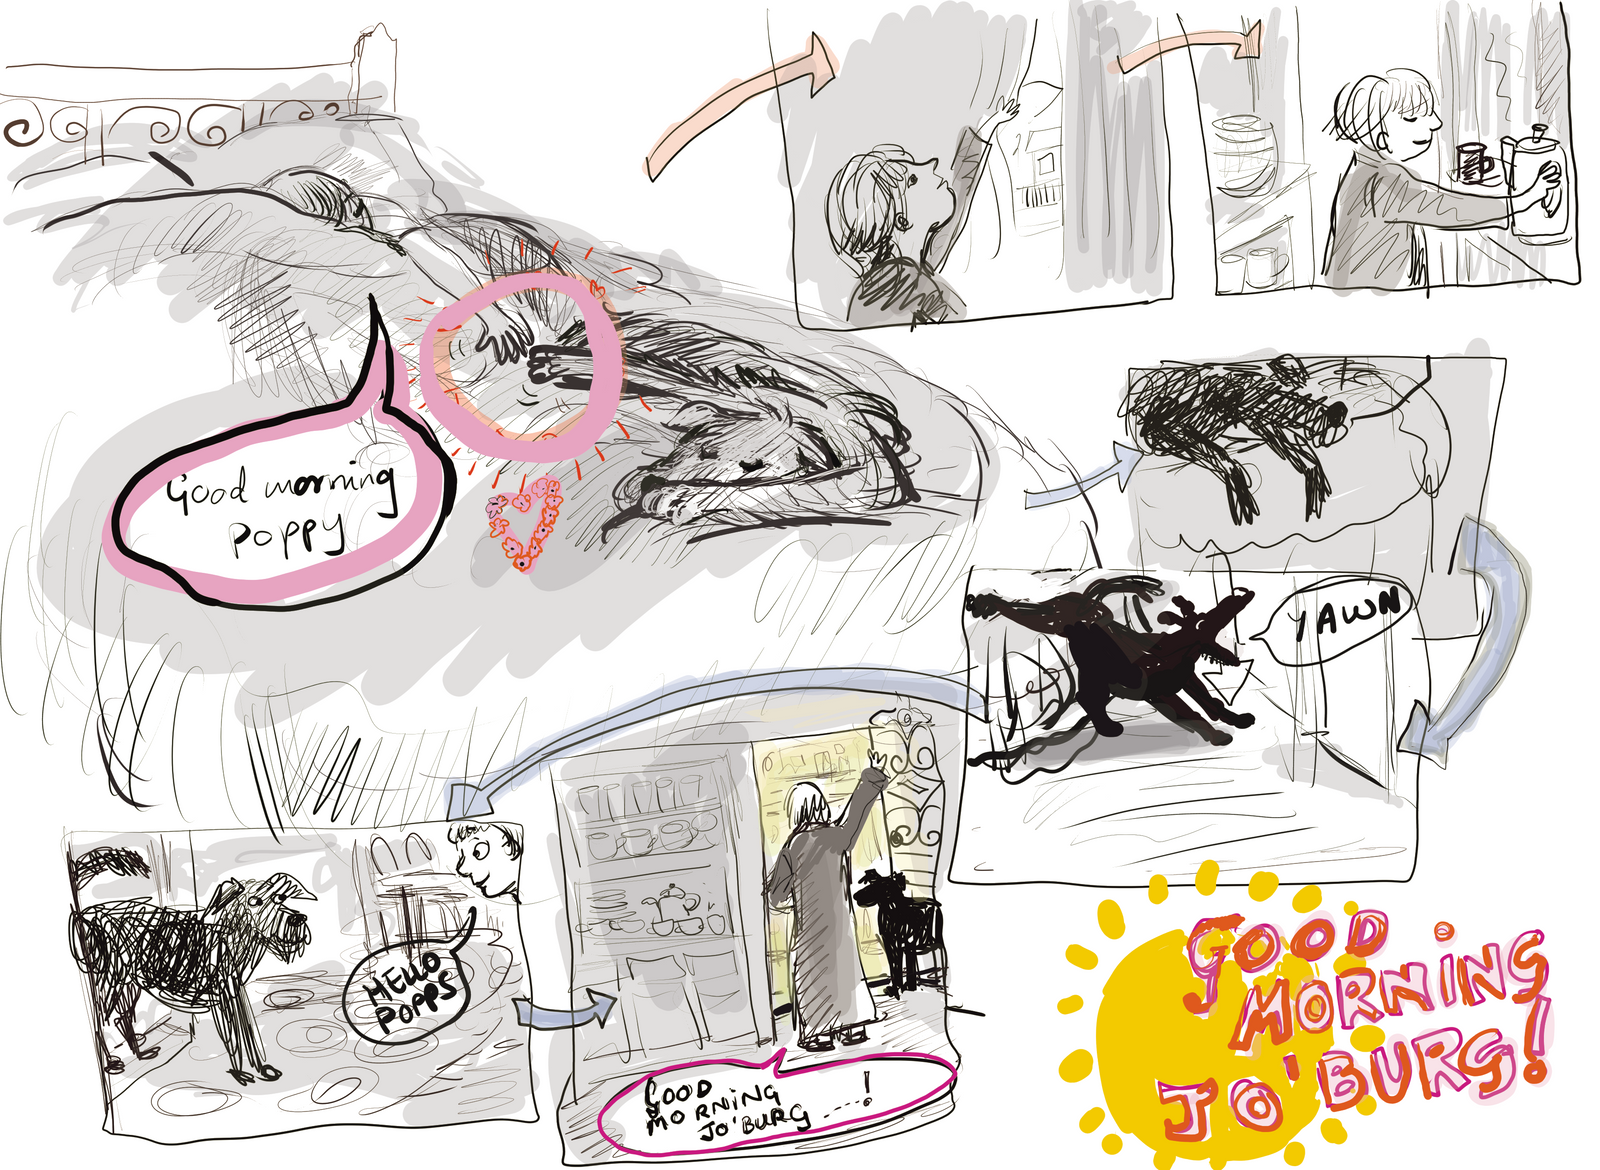 Good morning
poppy
YAWN
HELLO
POPPS
GOOD
MORNING
JO'BURG ----!
GOOD
MORNING
JO'BURG!